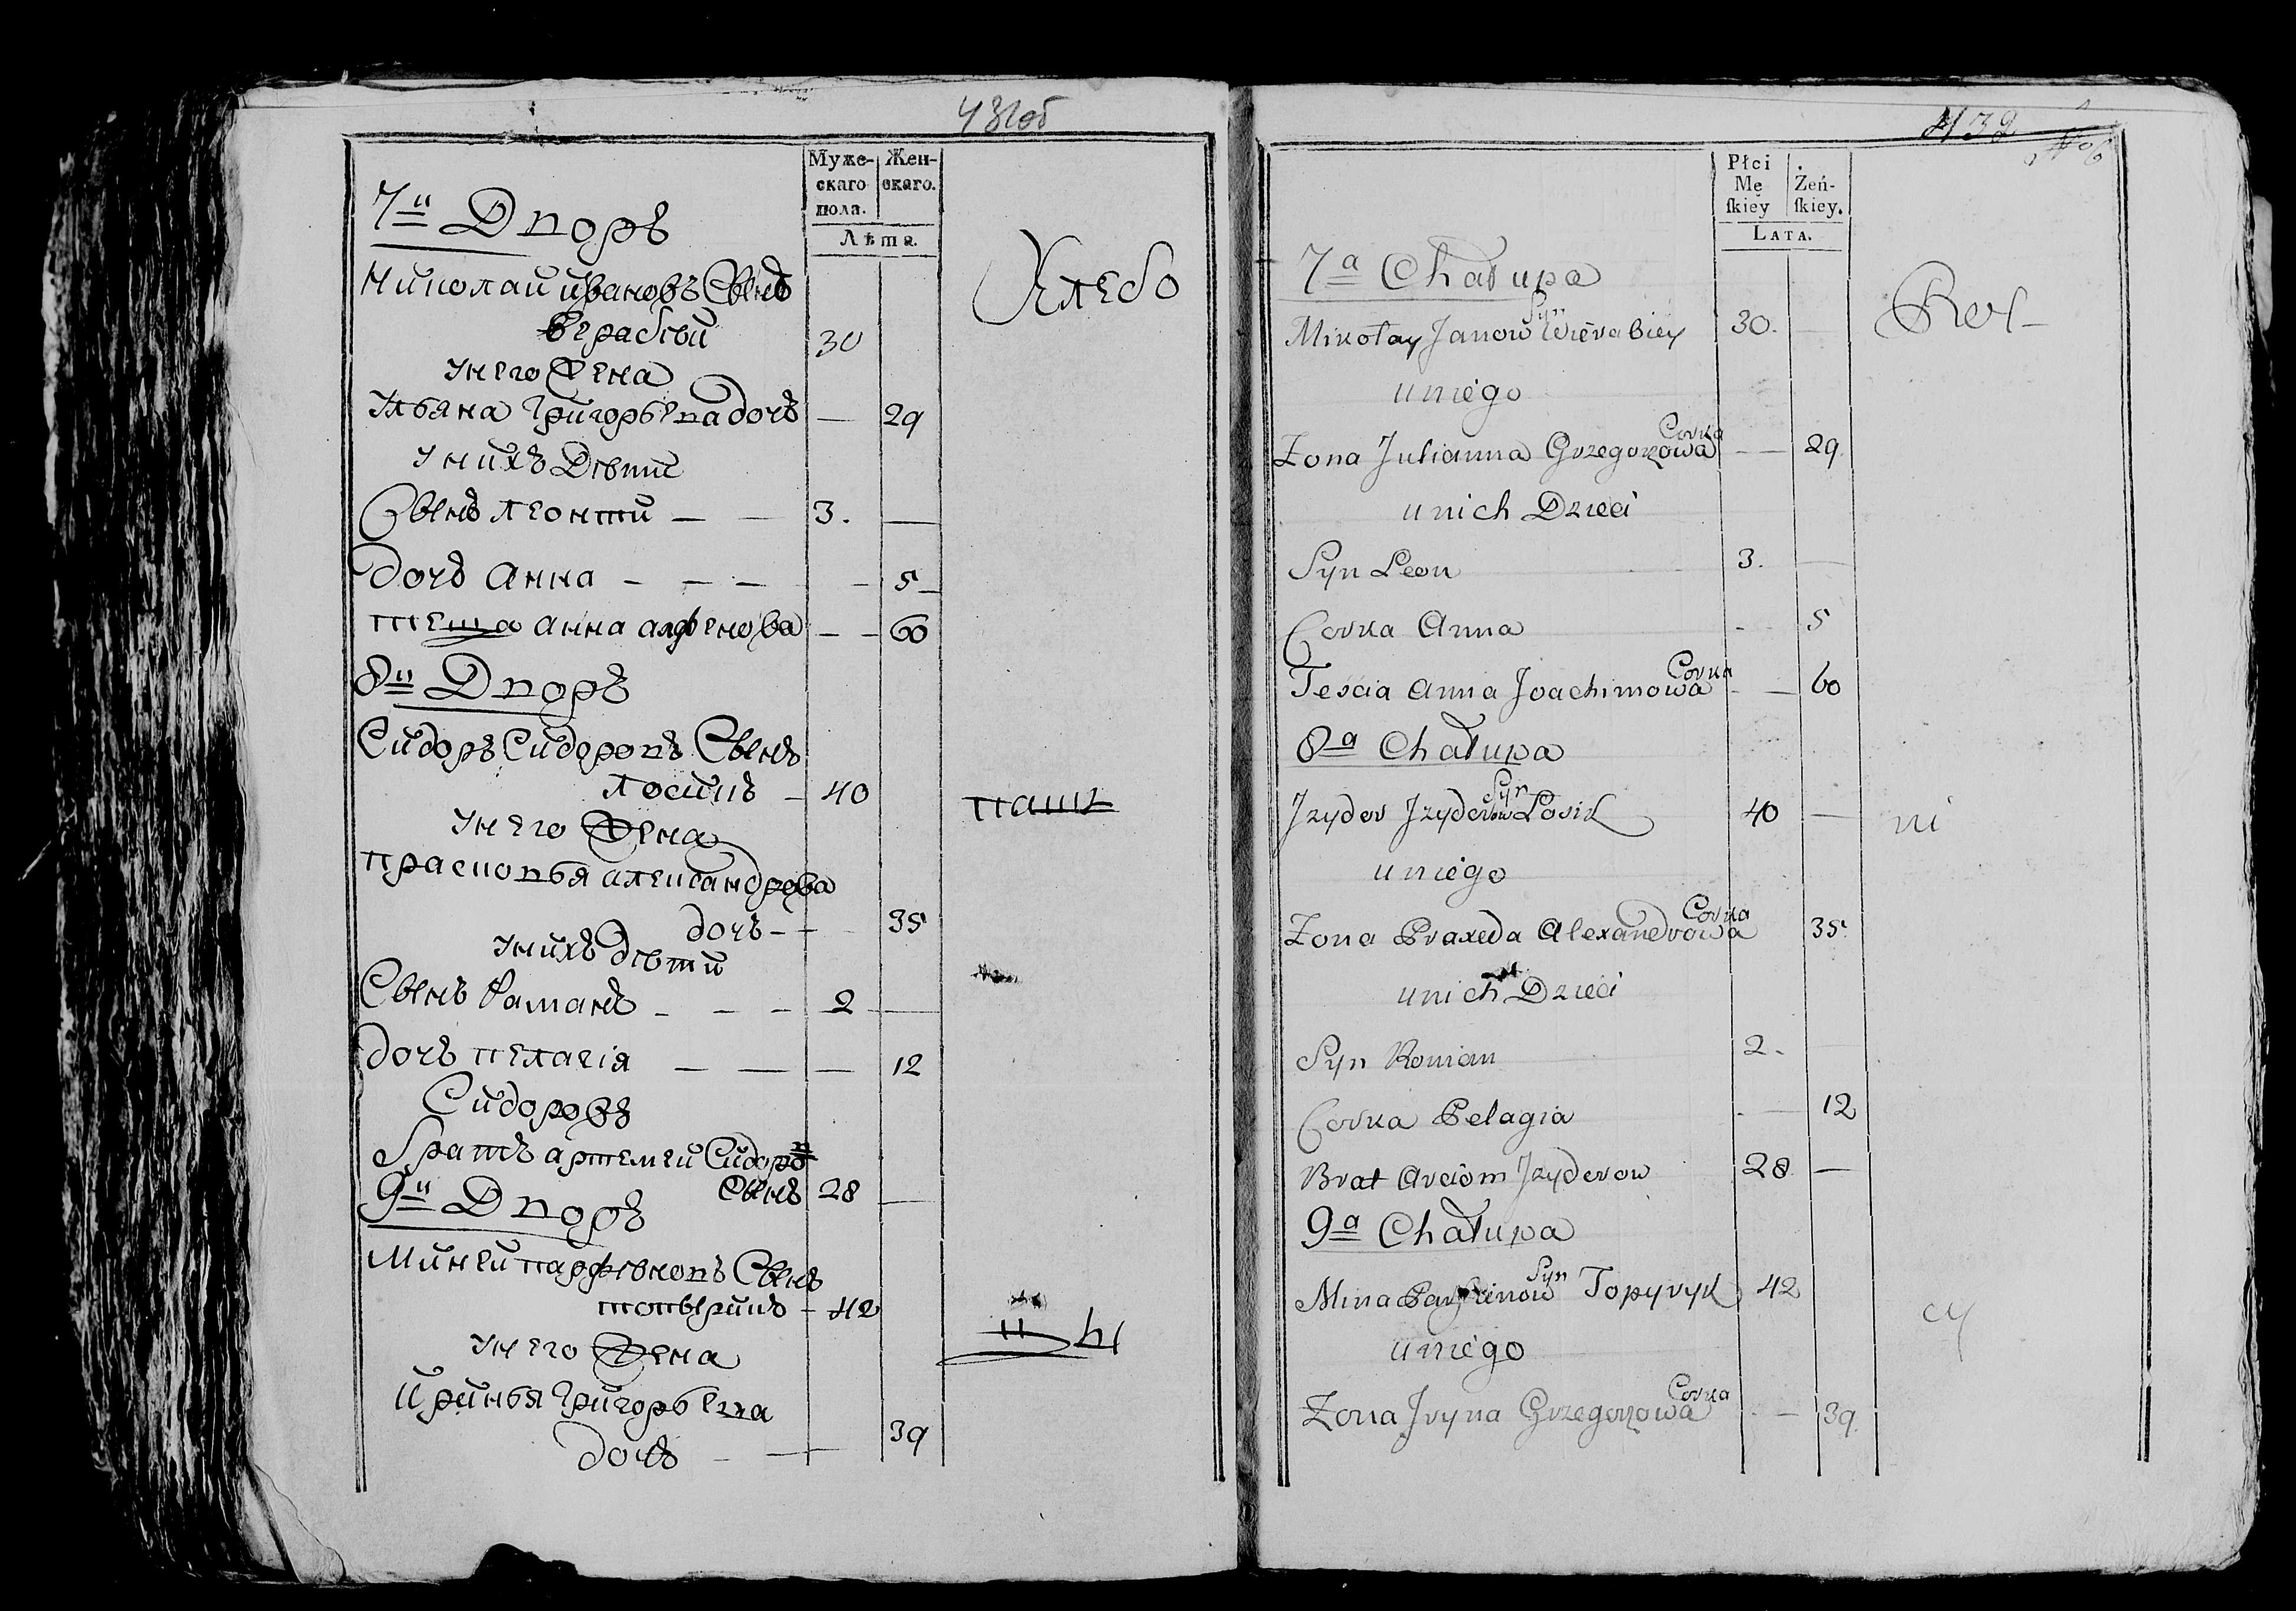 431об
Муже- Жен-
скаго скаго.
пола.
Лѣта.
7й Дворъ
Николай Ивановъ Сынъ
Верабей 30
Унего Жена
Ульяна Григорьева дочь — 29
Унихъ Дѣти
Сынъ Леонти — — 3. —
дочь Анна — — — — 5
теща Анна — — 60
8й Дворъ
Сидоръ Сидоровъ Сынъ
Лосикъ — 40
Унего Жена
Прасковья Александрова
дочь — — 35
Унихъ дѣти
Сынъ Раманъ — — — 2 —
Дочь Пелагія — — — 12
Сидоровъ
братъ Артемей Сидоровъ
Сынъ 28 —
9й Дворъ
Миней Парфѣновъ Сынъ
топырикъ — 42
Унего Жена
Иринья Григорьева
дочь — — 39
Хлебо
паш
432
Płci
Mę Żeń-
ſkiey ſkiey.
LATA.
7a Chałupa
Syn
Mikołay Janow Wierabiey 30. —
uniego
Corka
Żona Julianna Grzegorzowa — 29.
unich Dzieci
Syn Leon 3. —
Corka Anna - 5
Corka
Teścia Anna Joachimowa — 60
8a Chałupa
Syn
Jzydor Jzydorow Łosik 40 —
uniego
Corka
Żona Praxeda Alexandrowa 35.
unich Dzieci
Syn Roman 2. —
Corka Pelagia — 12
Brat Arciom Jzydorow 28. —
9a Chałupa
Syn
Mina Parfienow Topyryk 42
uniego
Corka
Żona Jryna Grzegorzowa — 39.
Rol-
ni
cy